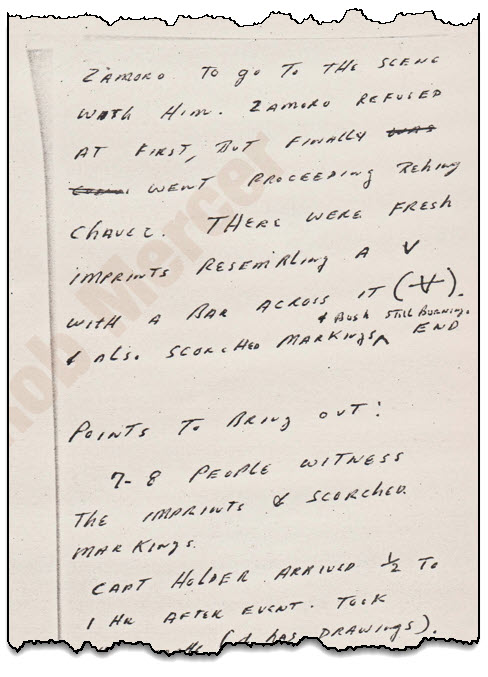 ZAMORO TO go TO THE SCENE
WITH HIM. ZAMORO REFUSED
AT FIRST, BUT FINALLY
WENT PROCEEDING BEHIND
CHAVEZ. THERE WERE FRESH
IMPRINTS RESEMBLING A V
WITH A BAR ACROSS IT (V).
& BUSH STILL BURNING.
& ALSO SCORCHED MARKINGS ^ END
POINTS TO BRING OUT:
7-8 PEOPLE WITNESS
THE IMPRINTS & SCORCHED
MARKINGS.
CAPT HOLDER ARRIVED 1/2 TO
1 HR AFTER EVENT. TOOK
(& HAS DRAWINGS).
Rob Mercer